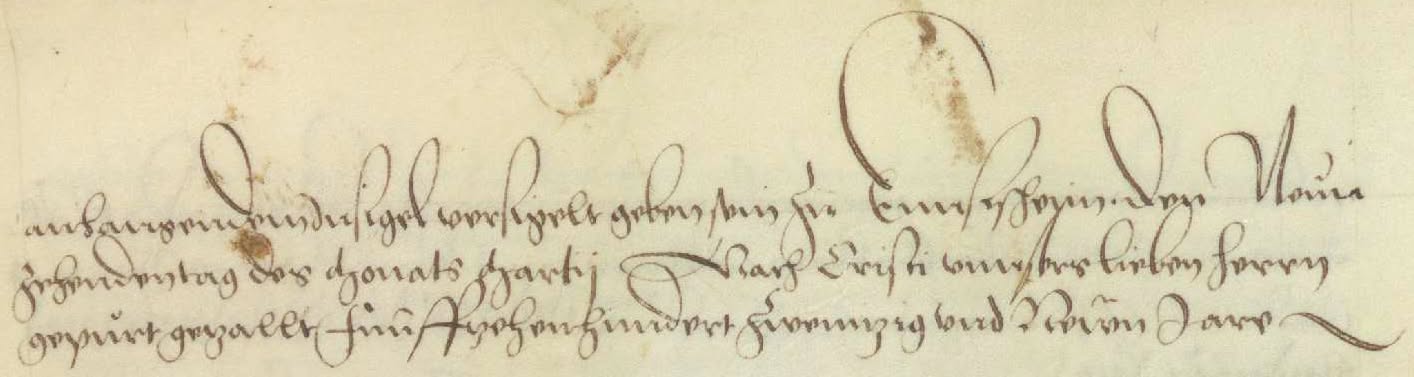 anhangendem Insigel versigelt geben sein zu Ennsisheym den Newn
zehendentag des Monats Martij Nach Cristi vnnsers lieben herrn
gepurt gezallt Fünffzehenhundert zwennzig vnd Newn Jare